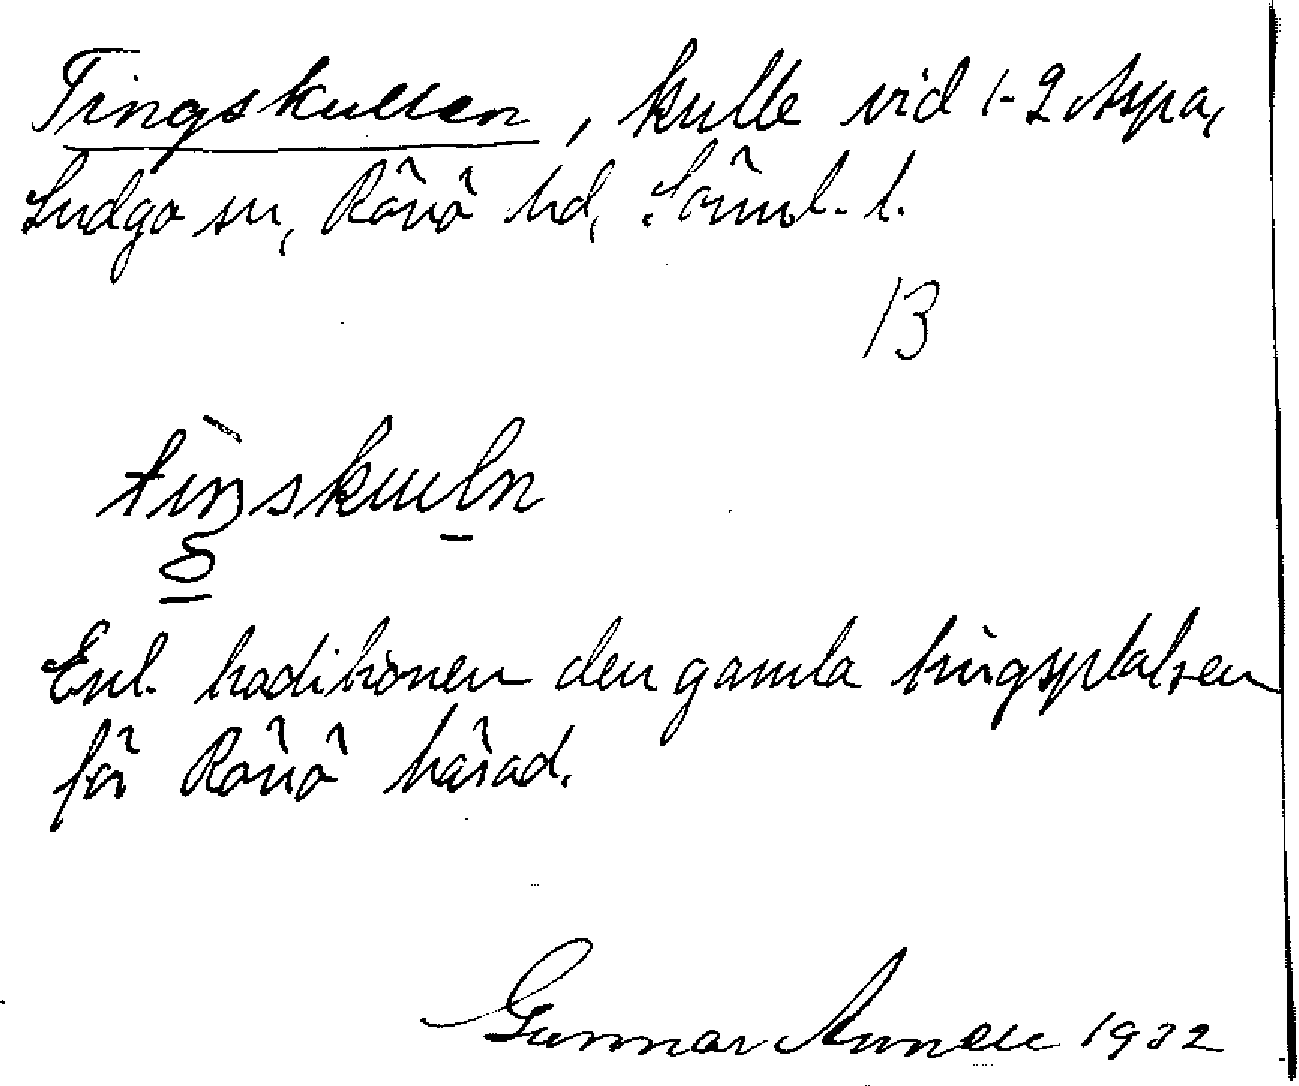 Tingskullen, kulle vid 1-2 Aspa,
Ludgo sn, Rönö hd, Sörml. l.
13
tìŋskuln
Enl. traditionen den gamla tingsplatsen
för Rönö härad.
Gunnar Annell 1932